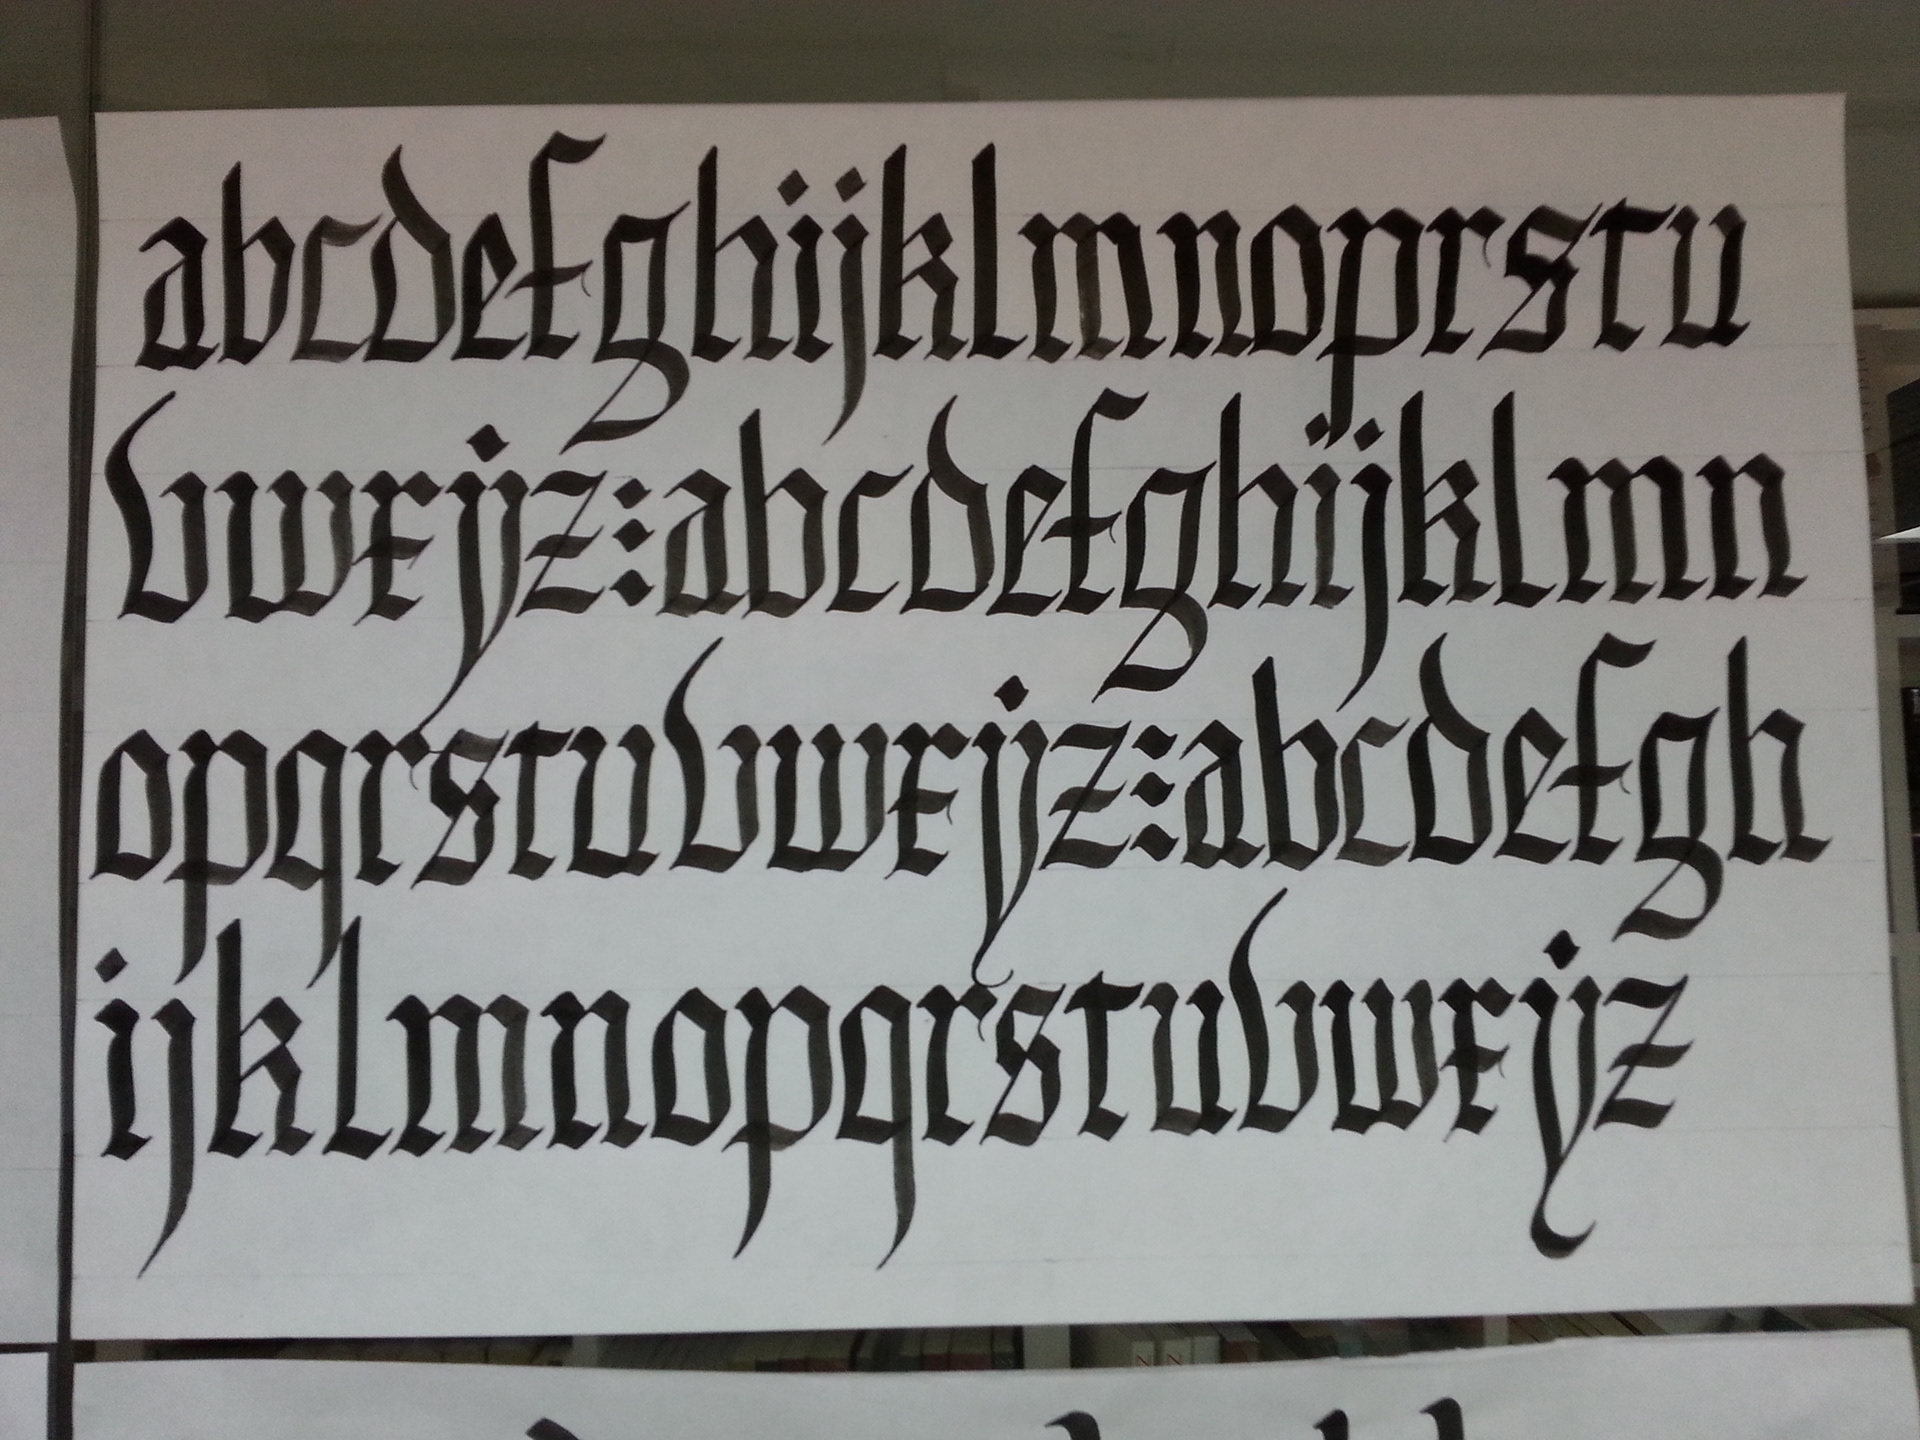 abcdefghijklmnoprstu
vwxyz:abcdefghijklmn
opqrstuvwxyz:abcdefgh
ijklmnopqrstuvwxyz